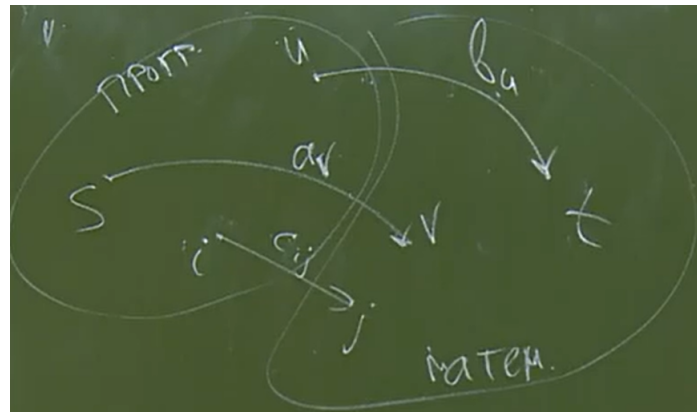 прогр.
u
b_u
S
a_v
v
t
i
c_ij
j
матем.